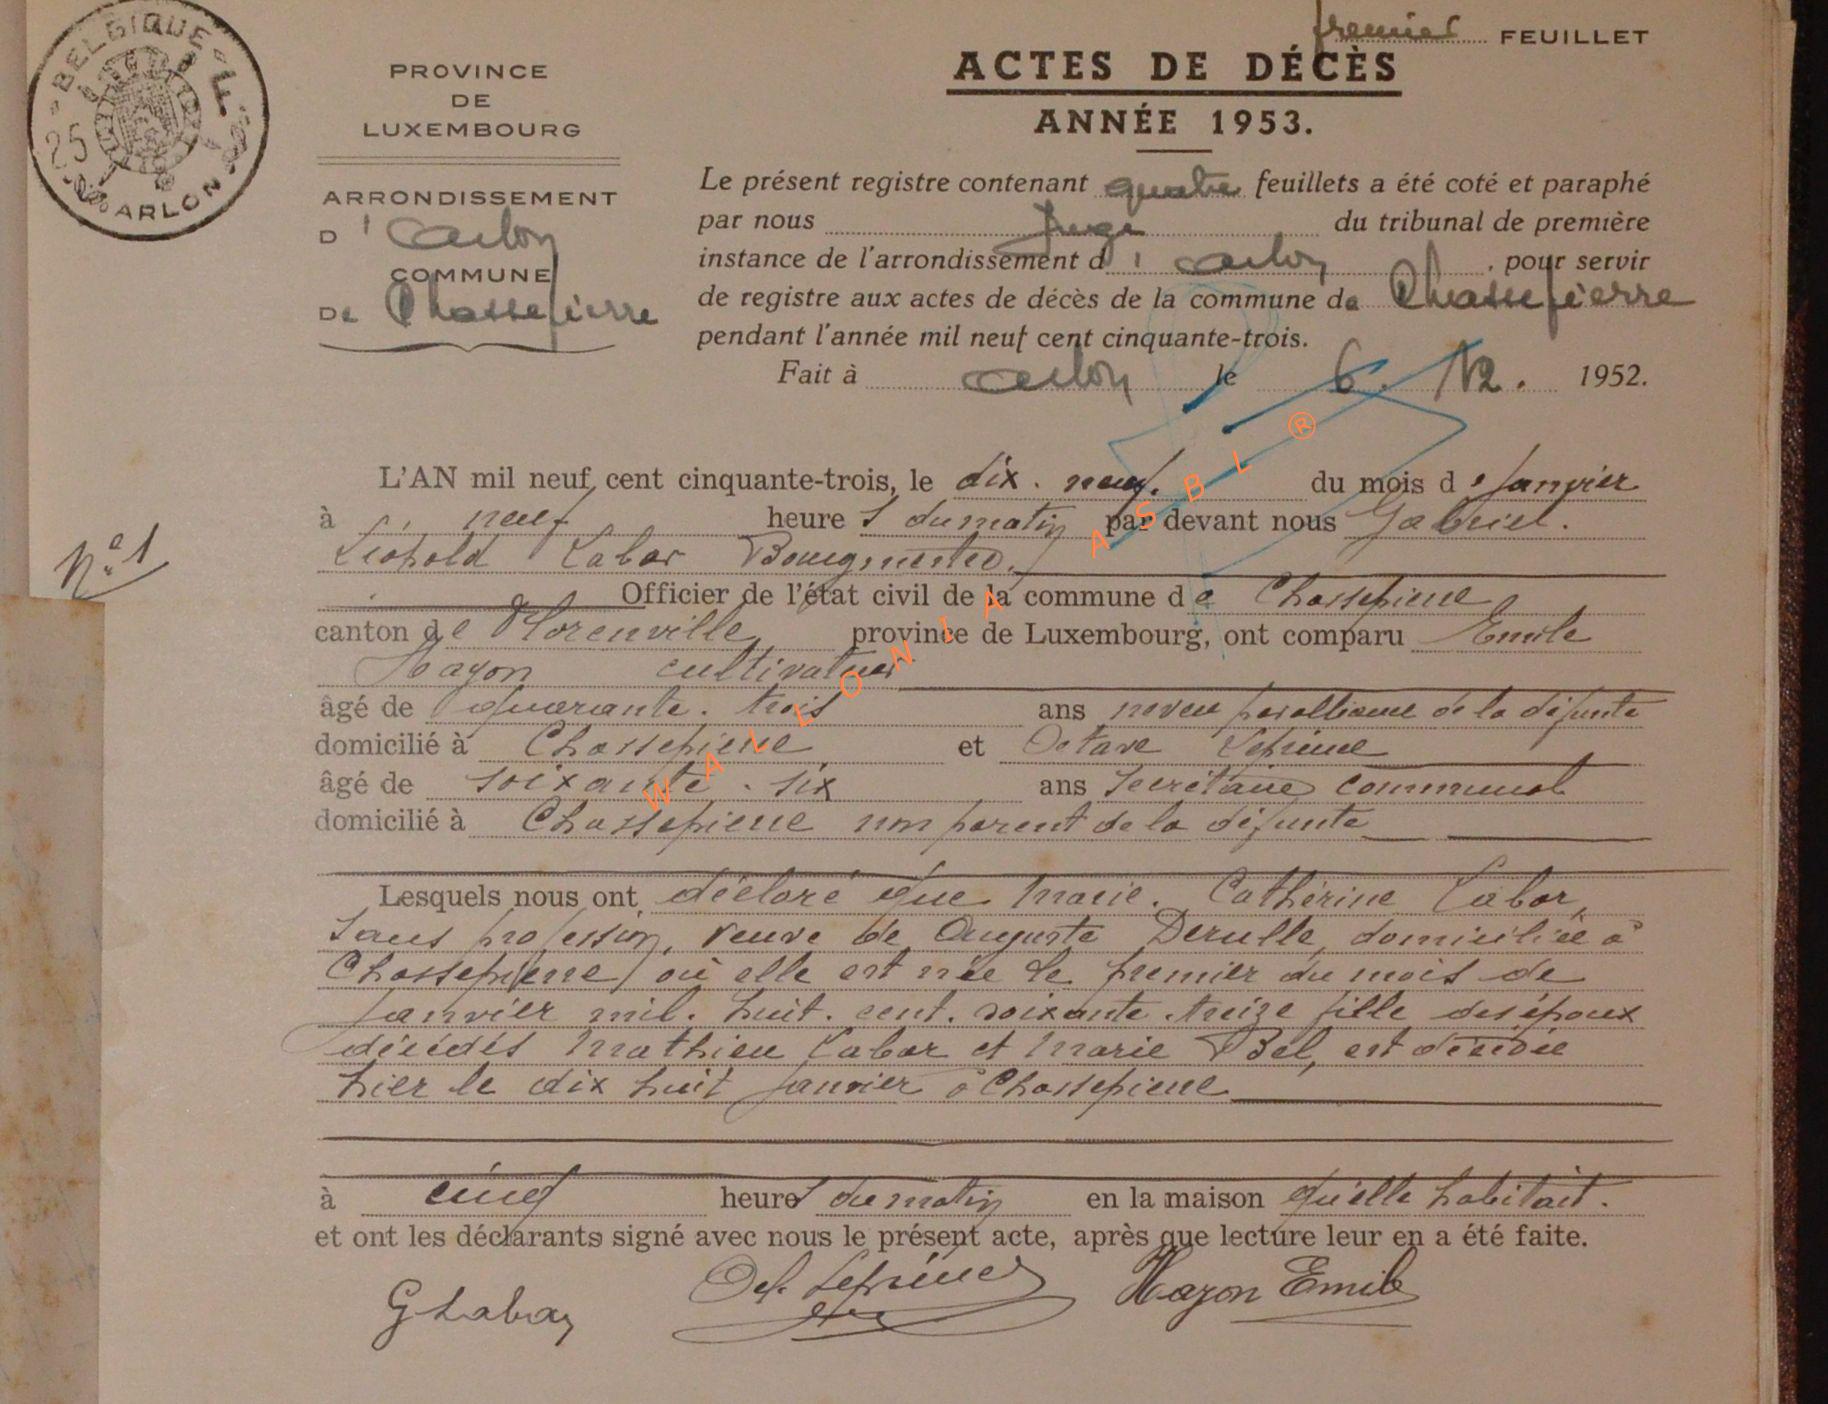 premier FEUILLET
BELGIQUE
25
ARLON
PROVINCE
DE
LUXEMBOURG
ARRONDISSEMENT
D'Arlon
COMMUNE
De Chassepierre
ACTES DE DÉCÈS
ANNÉE 1953.
Le présent registre contenant quatre feuillets a été coté et paraphé
par nous juge du tribunal de première
instance de l'arrondissement d'Arlon, pour servir
de registre aux actes de décès de la commune de Chassepierre
pendant l'année mil neuf cent cinquante-trois.
Fait à Arlon le 6. 12. 1952.
N° 1
L'AN mil neuf cent cinquante-trois, le dix. neuf. du mois de Janvier
à neuf heures du matin par devant nous Gabriel.
Léopold Labar Bourgmestre.
Officier de l'état civil de la commune de Chassepierre
canton de Florenville province de Luxembourg, ont comparu Emile
Hazon cultivateur
âgé de quarante. trois ans neveu par alliance de la défunte
domicilié à Chassepierre et Octave Lepineux
âgé de soixante. six ans secrétaire communal
domicilié à Chassepierre non parent de la défunte
Lesquels nous ont déclaré que Marie. Catherine Labar,
sans profession, veuve de Auguste Derulle, domiciliée à
Chassepierre, où elle est née le premier du mois de
Janvier mil. huit. cent. soixante. treize fille des époux
décédés Mathieu Labar et Marie Bel, est décédée
hier le dix huit Janvier à Chassepierre
à cinq heures du matin en la maison qu'elle habitait.
et ont les déclarants signé avec nous le présent acte, après que lecture leur en a été faite.
G Labar Hazon Emile
WALLONIA ASBL ®